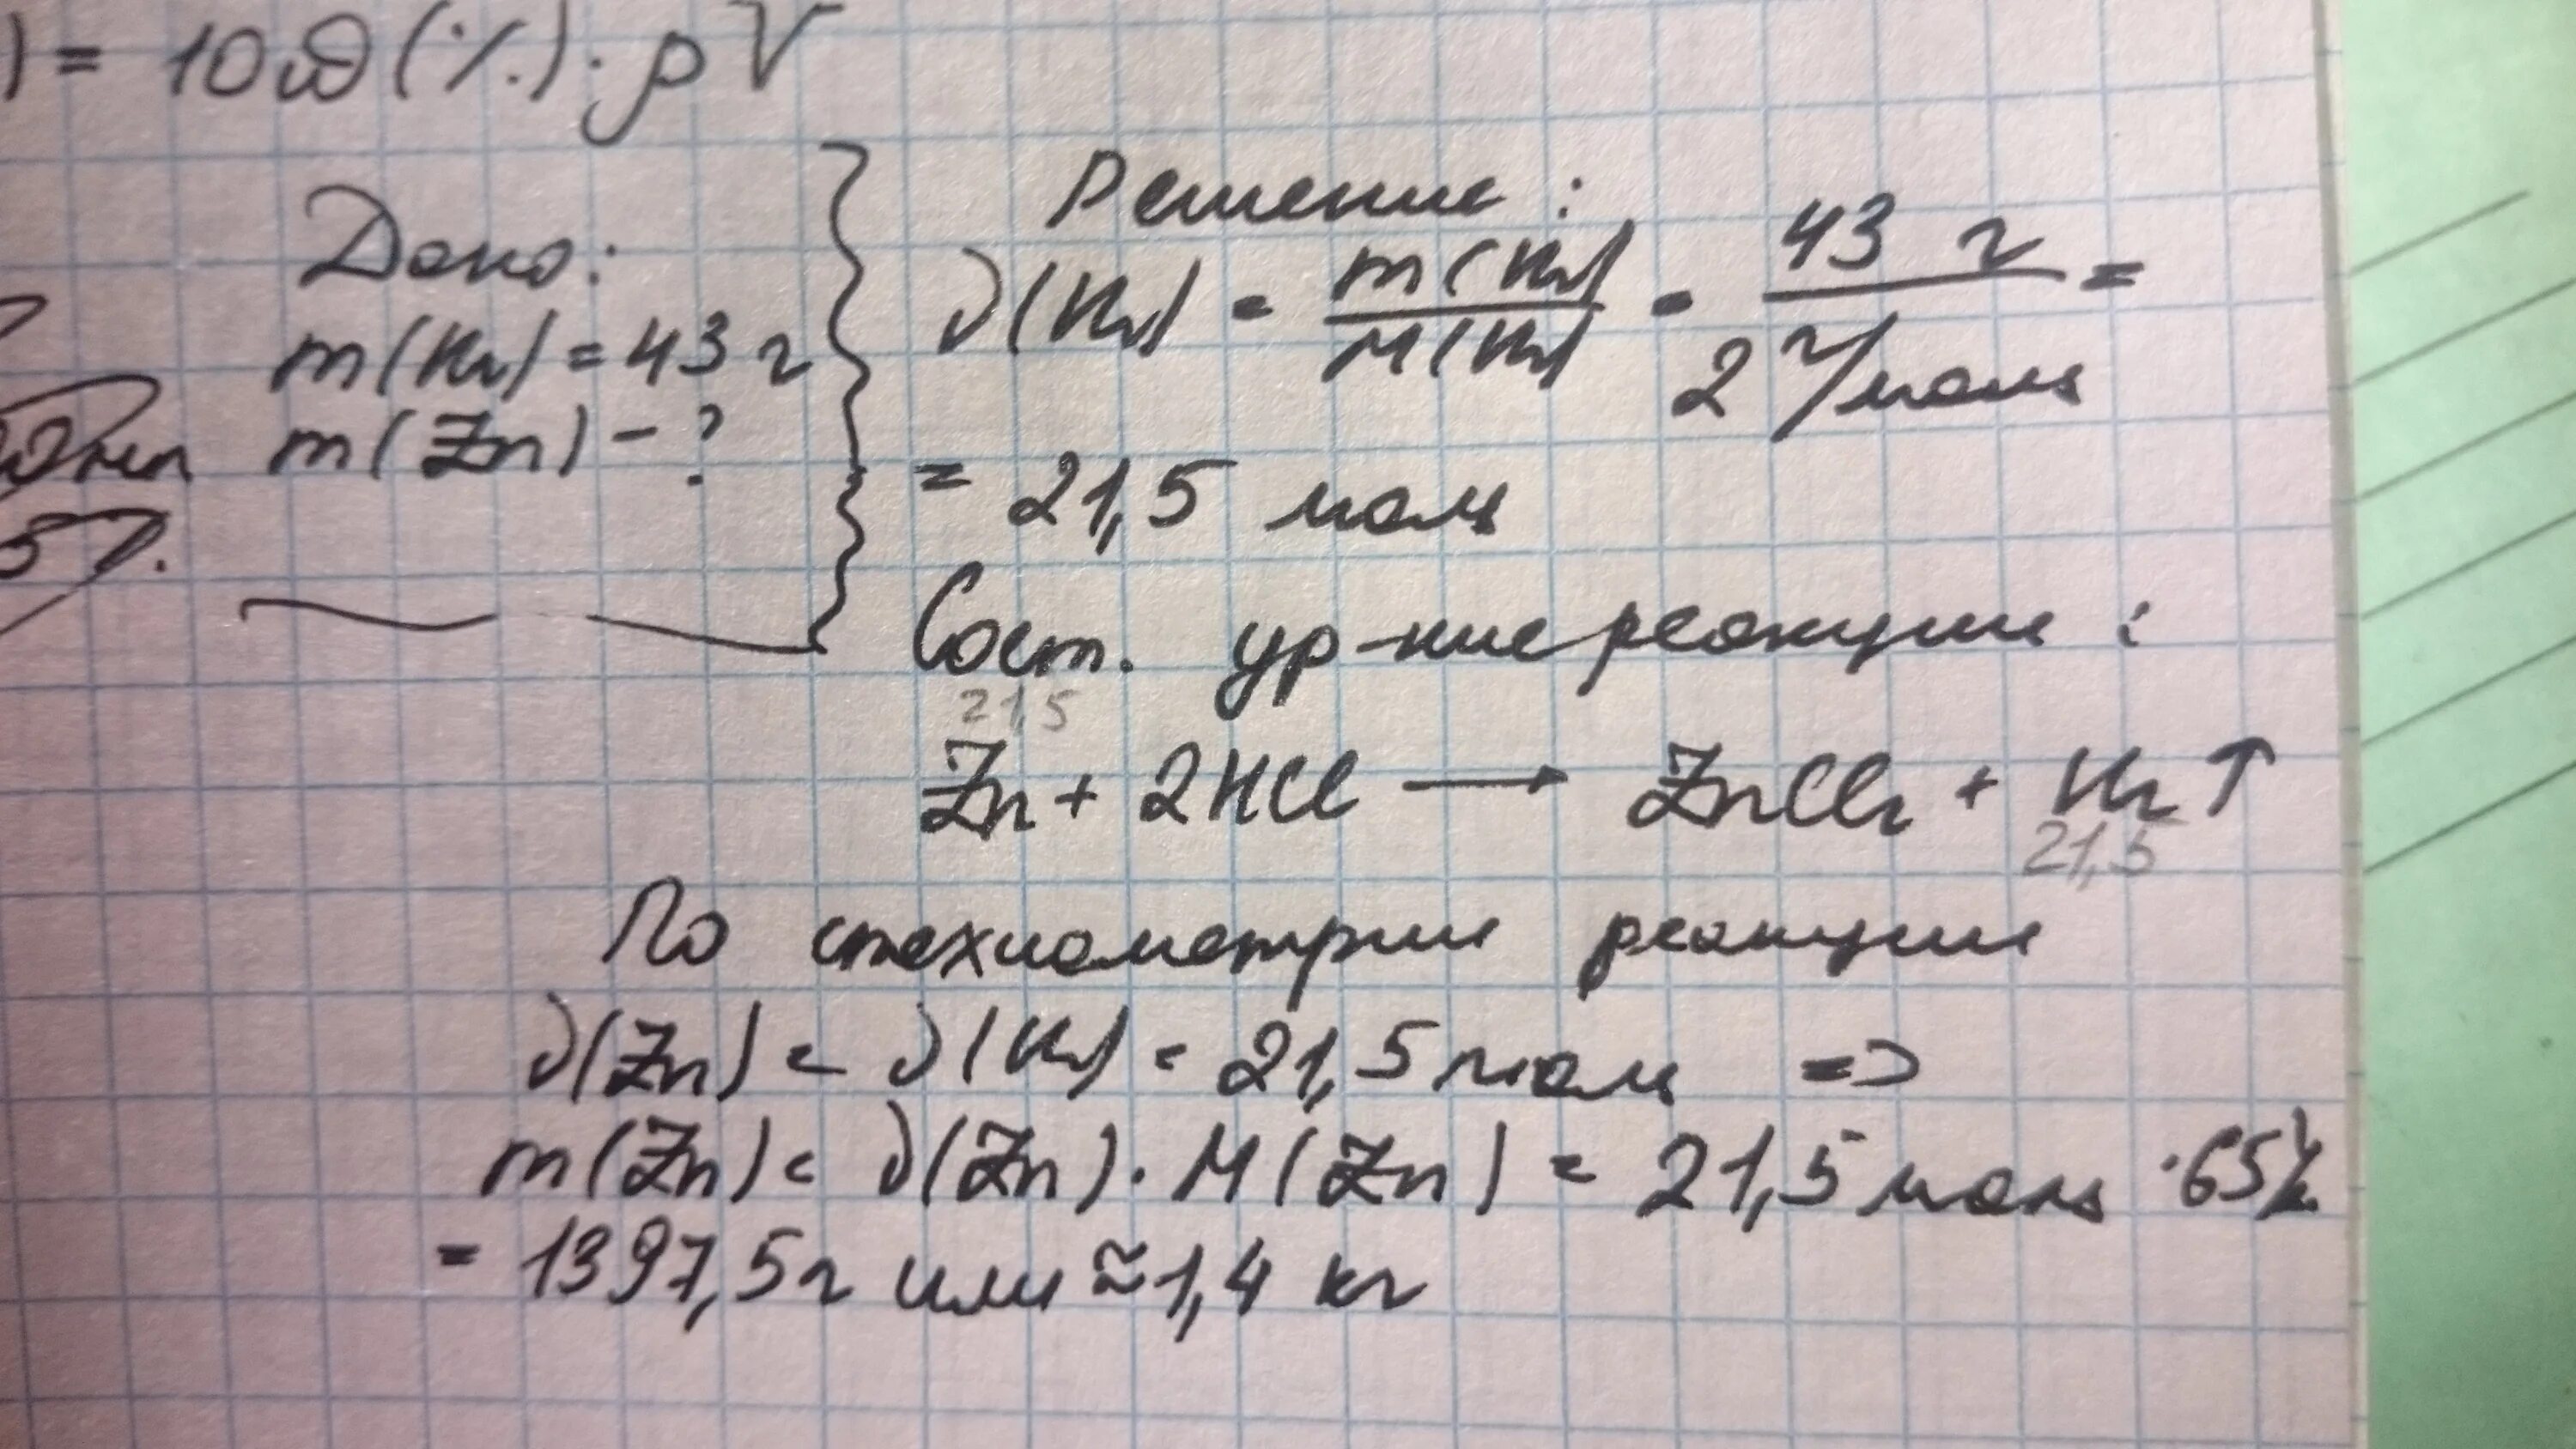 ) = 10ω(%)·ρV
Дано:
m(H₂) = 43 г
m(Zn) - ?
5%.
Решение:
ν(H₂) = m(H₂) / M(H₂) = 43 г / 2 г/моль =
= 21,5 моль
Сост. ур-ние реакции:
21,5
Zn + 2HCl → ZnCl₂ + H₂↑
21,5
По стехиометрии реакции
ν(Zn) = ν(H₂) = 21,5 моль =>
m(Zn) = ν(Zn)·M(Zn) = 21,5 моль ·65
= 1397,5 г или ≈ 1,4 кг